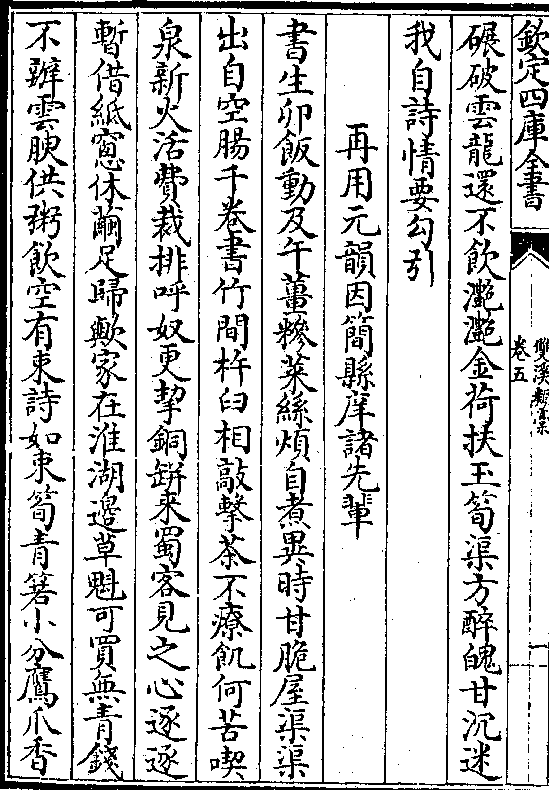 欽定四庫全書
雙溪類稾
卷五
碾破雲龍還不飲灔灔金荷扶玉筍渠方醉魄甘沉迷
我自詩情要勾引
再用元韻因簡縣庠諸先輩
書生卯飯動及午薑糝菜絲煩自煮異時甘脆屋渠渠
出自空腸千卷書竹間杵臼相敲擊茶不療飢何苦喫
泉新火活費裁排呼奴更挈銅缾來蜀客見之心逐逐
暫借紙窻休繭足歸歟家在淮湖邊草魁可買無青錢
不辦雲腴供粥飲空有束詩如束筍青篛小分鷹爪香